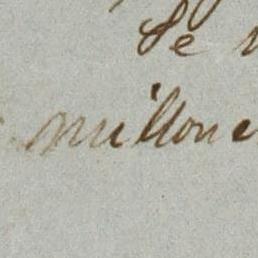 Se
millone